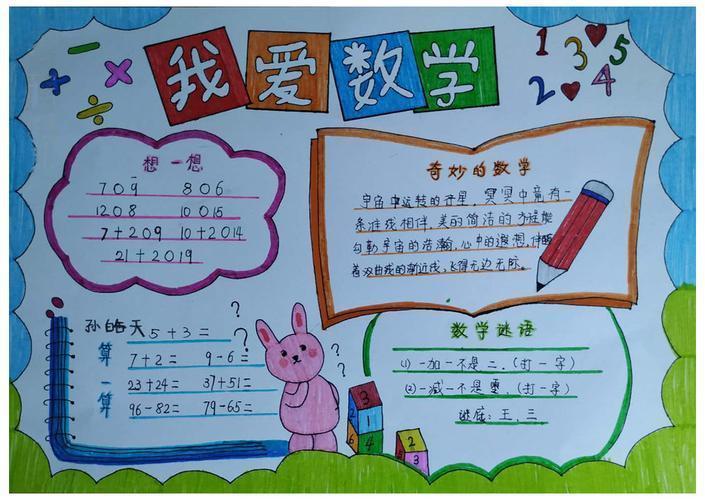 我爱数学
+ - × ÷
1 3 5
2 4
想一想
709 806
1208 10015
7+209 10+2014
21+2019
奇妙的数学
宇宙中运转的行星，冥冥中竟有一
条准线相伴，美的简洁的方程能
勾勒宇宙的浩瀚，心中的遐想，伴随
着双曲线的渐近线，飞得无边无际。
孙皓天
算一算
5+3=
7+2= 9-6=
23+24= 37+51=
96-82= 79-65=
? ? ? ?
数学谜语
(1) 一加一不是二。(打一字)
(2) 一减一不是零，(打一字)
谜底：王、三
3
2 1
6 4
2
1 3